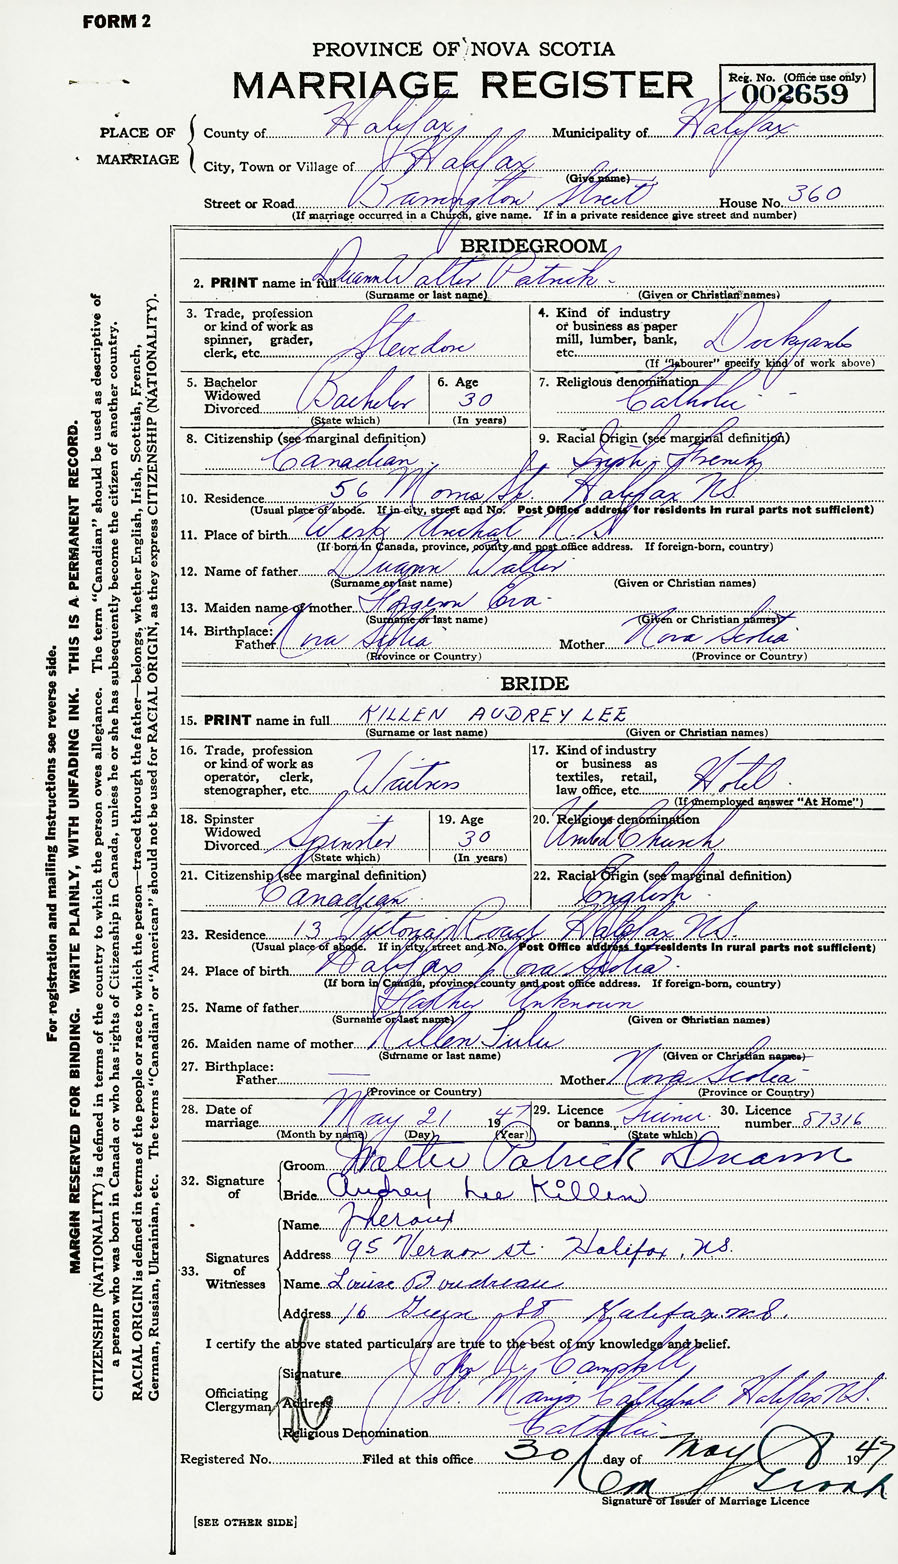 FORM 2
PROVINCE OF NOVA SCOTIA
MARRIAGE REGISTER
Reg. No. (Office use only)
002659
PLACE OF MARRIAGE
County of Halifax Municipality of Halifax
City, Town or Village of Halifax
(Give name)
Street or Road Barrington Street House No. 360
(If marriage occurred in a Church, give name. If in a private residence give street and number)
BRIDEGROOM
2. PRINT name in full Duann Walter Patrick
(Surname or last name) (Given or Christian names)
3. Trade, profession or kind of work as spinner, grader, clerk, etc. Stevedore
4. Kind of industry or business as paper mill, lumber, bank, etc. Dockyards
(If "labourer" specify kind of work above)
5. Bachelor Widowed Divorced Bachelor
(State which)
6. Age 30
(In years)
7. Religious denomination Catholic
8. Citizenship (see marginal definition)
Canadian
9. Racial Origin (see marginal definition)
Irish French
10. Residence 56 Morris St. Halifax N.S.
(Usual place of abode. If in city, street and No. Post Office address for residents in rural parts not sufficient)
11. Place of birth West Arichat N.S
(If born in Canada, province, county and post office address. If foreign-born, country)
12. Name of father Duann Walter
(Surname or last name) (Given or Christian names)
13. Maiden name of mother Eva
(Surname or last name) (Given or Christian names)
14. Birthplace: Father Nova Scotia Mother Nova Scotia
(Province or Country) (Province or Country)
BRIDE
15. PRINT name in full KILLEN AUDREY LEE
(Surname or last name) (Given or Christian names)
16. Trade, profession or kind of work as operator, clerk, stenographer, etc. Waitress
17. Kind of industry or business as textiles, retail, law office, etc. Hotel
(If unemployed answer "At Home")
18. Spinster Widowed Divorced Spinster
(State which)
19. Age 30
(In years)
20. Religious denomination
United Church
21. Citizenship (see marginal definition)
Canadian
22. Racial Origin (see marginal definition)
English
23. Residence 13 Victoria Road Halifax N.S.
(Usual place of abode. If in city, street and No. Post Office address for residents in rural parts not sufficient)
24. Place of birth Halifax Nova Scotia
(If born in Canada, province, county and post office address. If foreign-born, country)
25. Name of father Father Unknown
(Surname or last name) (Given or Christian names)
26. Maiden name of mother Killen Lulu
(Surname or last name) (Given or Christian names)
27. Birthplace: Father — Mother Nova Scotia
(Province or Country) (Province or Country)
28. Date of marriage May 21 1947
(Month by name) (Day) (Year)
29. Licence or banns
(State which)
30. Licence number 87316
32. Signature of
Groom Walter Patrick Duann
Bride Audrey Lee Killen
33. Signatures of Witnesses
Name Theroux
Address 95 Vernon st. Halifax, N.S.
Name Louise Boudreau
Address 16 St Halifax N.S.
I certify the above stated particulars are true to the best of my knowledge and belief.
Officiating Clergyman
Signature John Campbell
Address St. Mary's Cathedral Halifax N.S.
Religious Denomination Catholic
Registered No. Filed at this office 30 day of May 1947
Signature of Issuer of Marriage Licence
[SEE OTHER SIDE]
For registration and mailing instructions see reverse side.
MARGIN RESERVED FOR BINDING. WRITE PLAINLY, WITH UNFADING INK. THIS IS A PERMANENT RECORD.
CITIZENSHIP (NATIONALITY) is defined in terms of the country to which the person owes allegiance. The term "Canadian" should be used as descriptive of
a person who was born in Canada or who has rights of Citizenship in Canada, unless he or she has subsequently become the citizen of another country.
RACIAL ORIGIN is defined in terms of the people or race to which the person—traced through the father—belongs, whether English, Irish, Scottish, French,
German, Russian, Ukrainian, etc. The terms "Canadian" or "American" should not be used for RACIAL ORIGIN, as they express CITIZENSHIP (NATIONALITY).